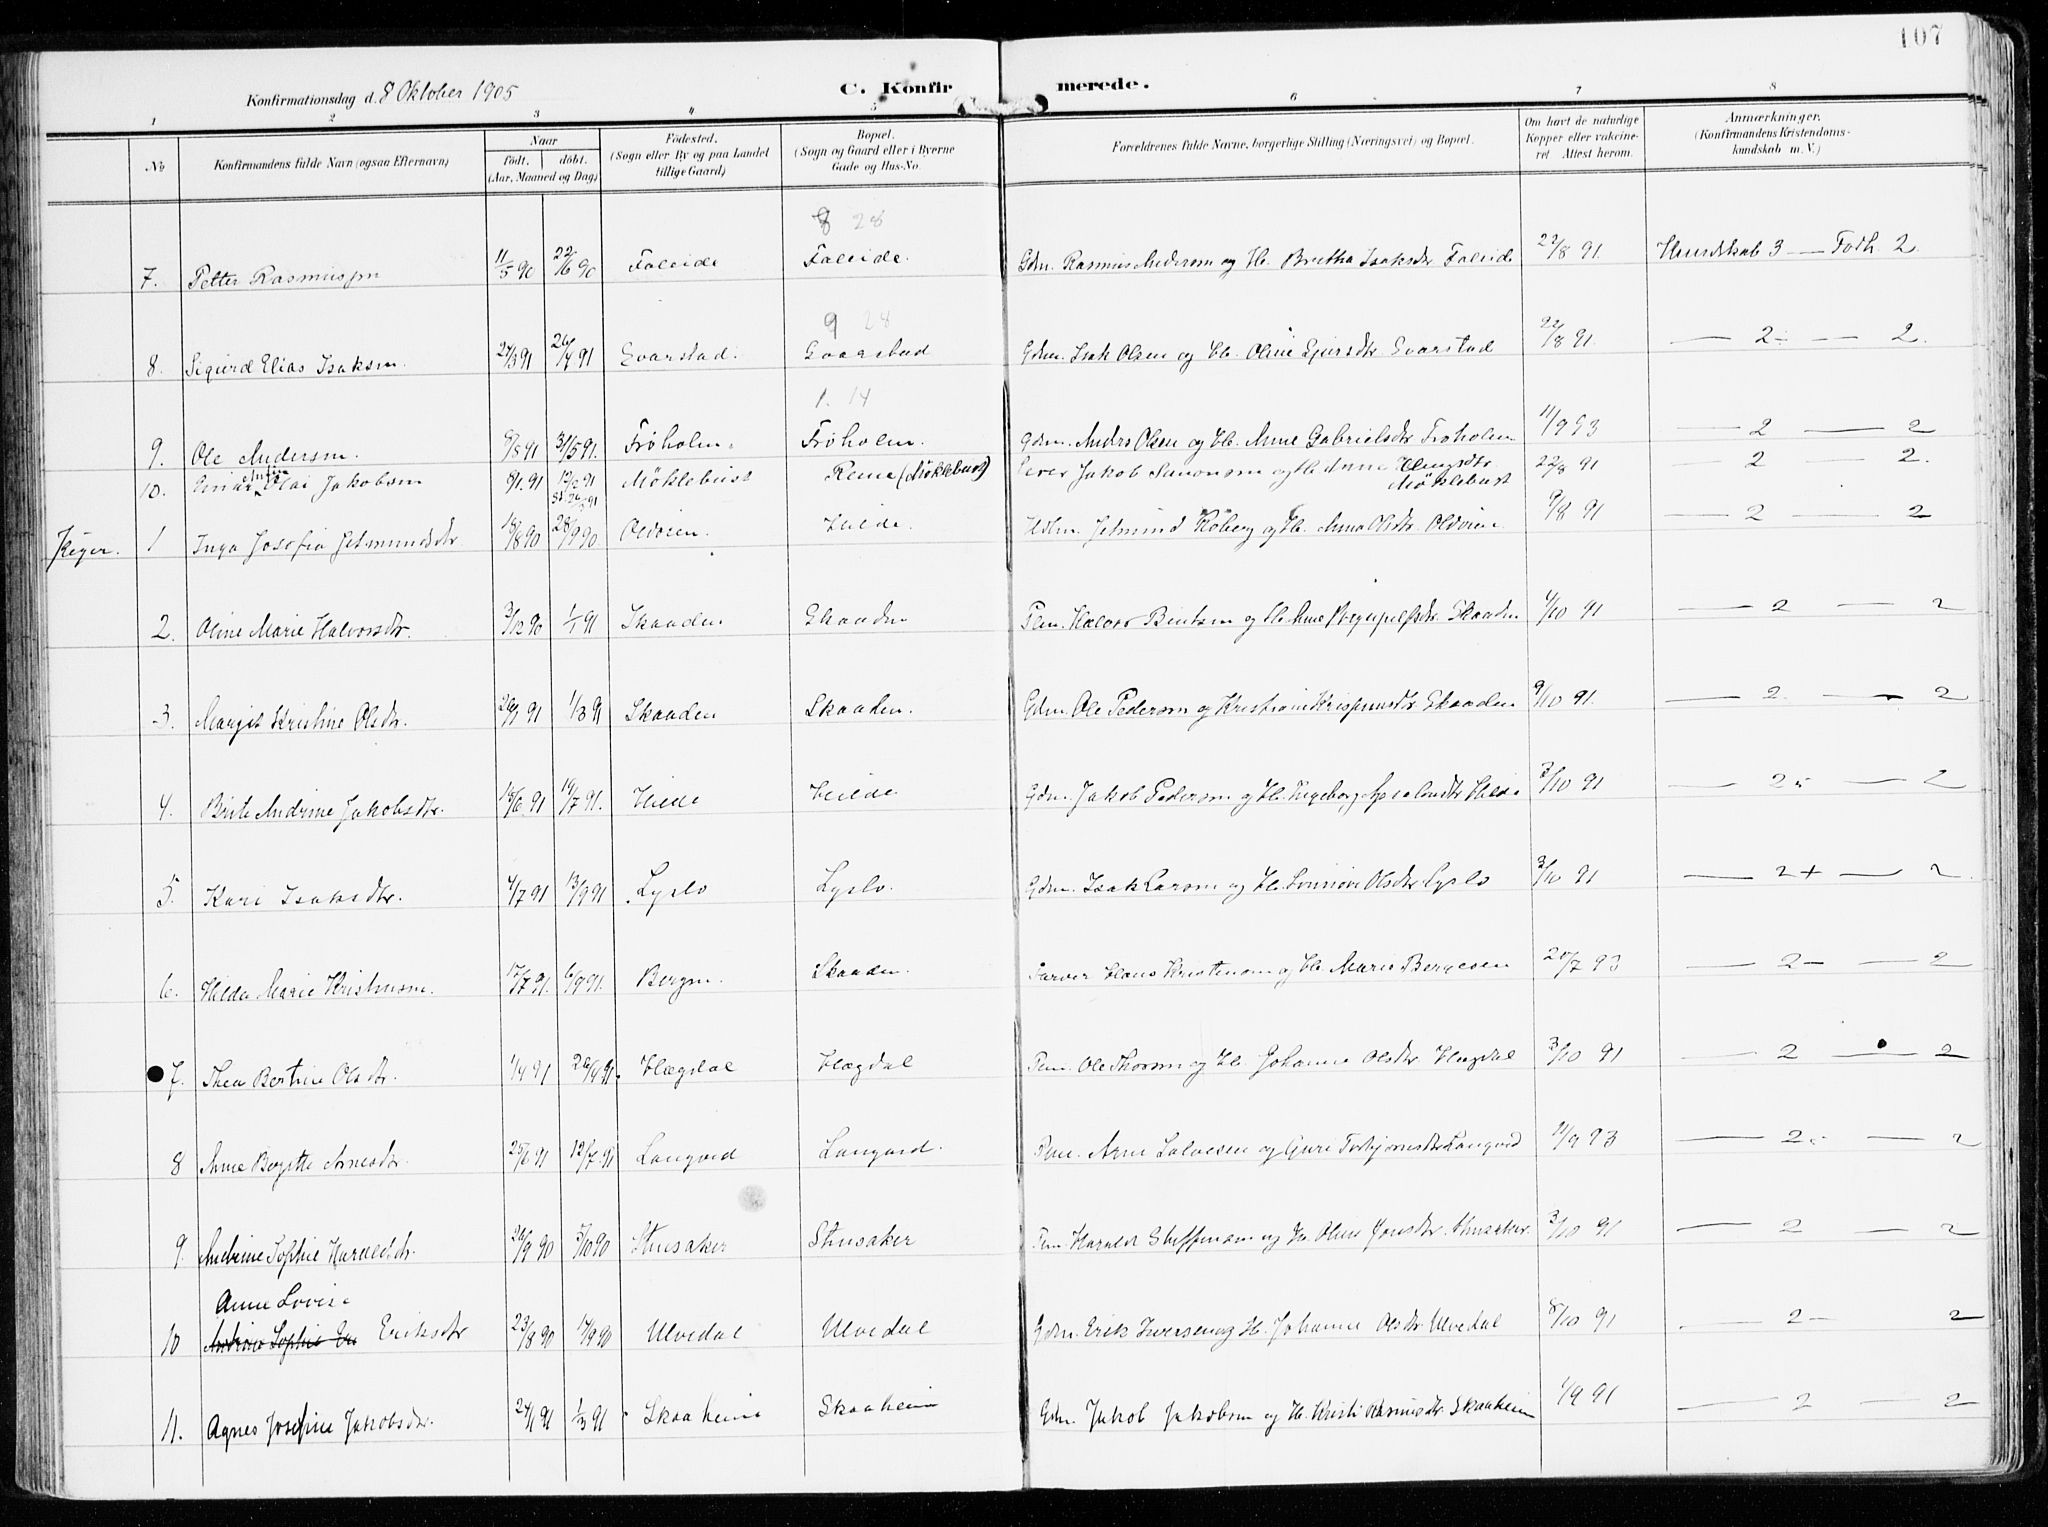 107
Konfirmationsdag d. 8 Oktober 1905 C. Konfirmerede.
1 2 3 4 5 6 7 8
No
Konfirmandens fulde Navn (ogsaa Efternavn)
Naar födt. döbt. (Aar, Maaned og Dag)
Födested. (Sogn eller By og paa Landet tillige Gaard)
Bopæl. (Sogn og Gaard eller i Byerne Gade og Hus-No.
Forældrenes fulde Navne, borgerlige Stilling (Næringsvei) og Bopæl.
Om havt de naturlige Kopper eller vakcineret. Attest herom.
Anmærkninger. (Konfirmandens Kristendomskundskab m. V.)
8 28
7. Petter Rasmussen 11/5 90 22/6 90 Faleide Faleide. Gdm. Rasmus Anderson og H. Faleide 22/8 91. Kundskab 3 — 2
9 28
8. Sigurd Elias Isaksen. 27/3 91 26/4 91 Evarstad. Gdm. Isak Olsen og H. Oline Evarstad 22/8 91. — 2 — 2.
1. 14
9. Ole Andersen. 8/5 91 31/5 91. Frøholm. Frøholm. Gdm. Anders Olsen og H. Anne Gabrielsdtr Frøholm 11/9 93 — 2 — 2
10. Olai Jakobsen 8/1 91 Møklebust (Møklebust) Jakob Simonsen og H. Anne Møklebust 22/8 91 — 2 — 2.
Piger. 1 Inga Josefia Jetmundsdtr. 18/8 90 28/9 90 Oldøien. Hilde. Jetmund Røberg og H. Anna Olsdtr. Oldøien. 9/8 91 — 2 — 2
2. Oline Marie Halvorsdtr. 3/12 90 1/1 91 Skaaden Skaaden Halvor Bentsen og H. Anne Skaaden 4/10 91 — 2 — 2
3. Margit Kristine Olsdtr. 1/3 91 Skaaden Skaaden. Gdm. Ole Pedersen og Kristiane Skaaden 9/10 91. — 2 — 2
4. Brite Andrine Jakobsdtr. 18/6 91 19/7 91. Hilde Hilde Gdm. Jakob Pedersen og H. Ingeborg Absalonsdtr Hilde 3/10 91 — 2 — 2
5. Kari Isaksdtr. 4/7 91 13/9 91 Lyslo Lyslo. Gdm. Isak Larsen og H. Olsdtr Lyslo 3/10 91 — 2+ — 2.
6. Hilda Marie Kristensen. 17/7 91. 6/9 91. Bergen. Skaaden. Farver Claus Kristensen og H. Marie Bergesen 20/7 93 — 2 — 2
7. Thea Bertine Olsdtr. 1/4 91 26/4 91. Hægdal Hægdal Ole Thorsen og H. Johanne Olsdtr Hægdal 3/10 91 — 2 — 2
8 Anne Birgitte Arnesdtr. 25/6 91 12/7 91 Langvad Langvad. Arne Salvesen og Guri Torbjørnsdtr Langvad 11/9 93 — 2 — 2
9. Andrine Sophie Haraldsdtr. 26/9 90 5/10 90 Stusaker Stusaker Harald Steffensen og H. Oline Jonsdtr. Stusaker. 3/10 91 — 2 — 2
Anne Lovise
10 Andrine Sophie Eriksdtr 23/8 90 17/9 90 Ulvedal Ulvedal Gdm. Erik Iversen og H. Johanne Olsdtr. Ulvedal 8/10 91 — 2 — 2
11. Agnes Josefine Jakobsdtr. 24/1 91 1/3 91 Skaaheim Skaaheim Gdm. Jakob Jakobsen og H. Kristi Rasmusdtr Skaaheim 1/9 91 — 2 — 2